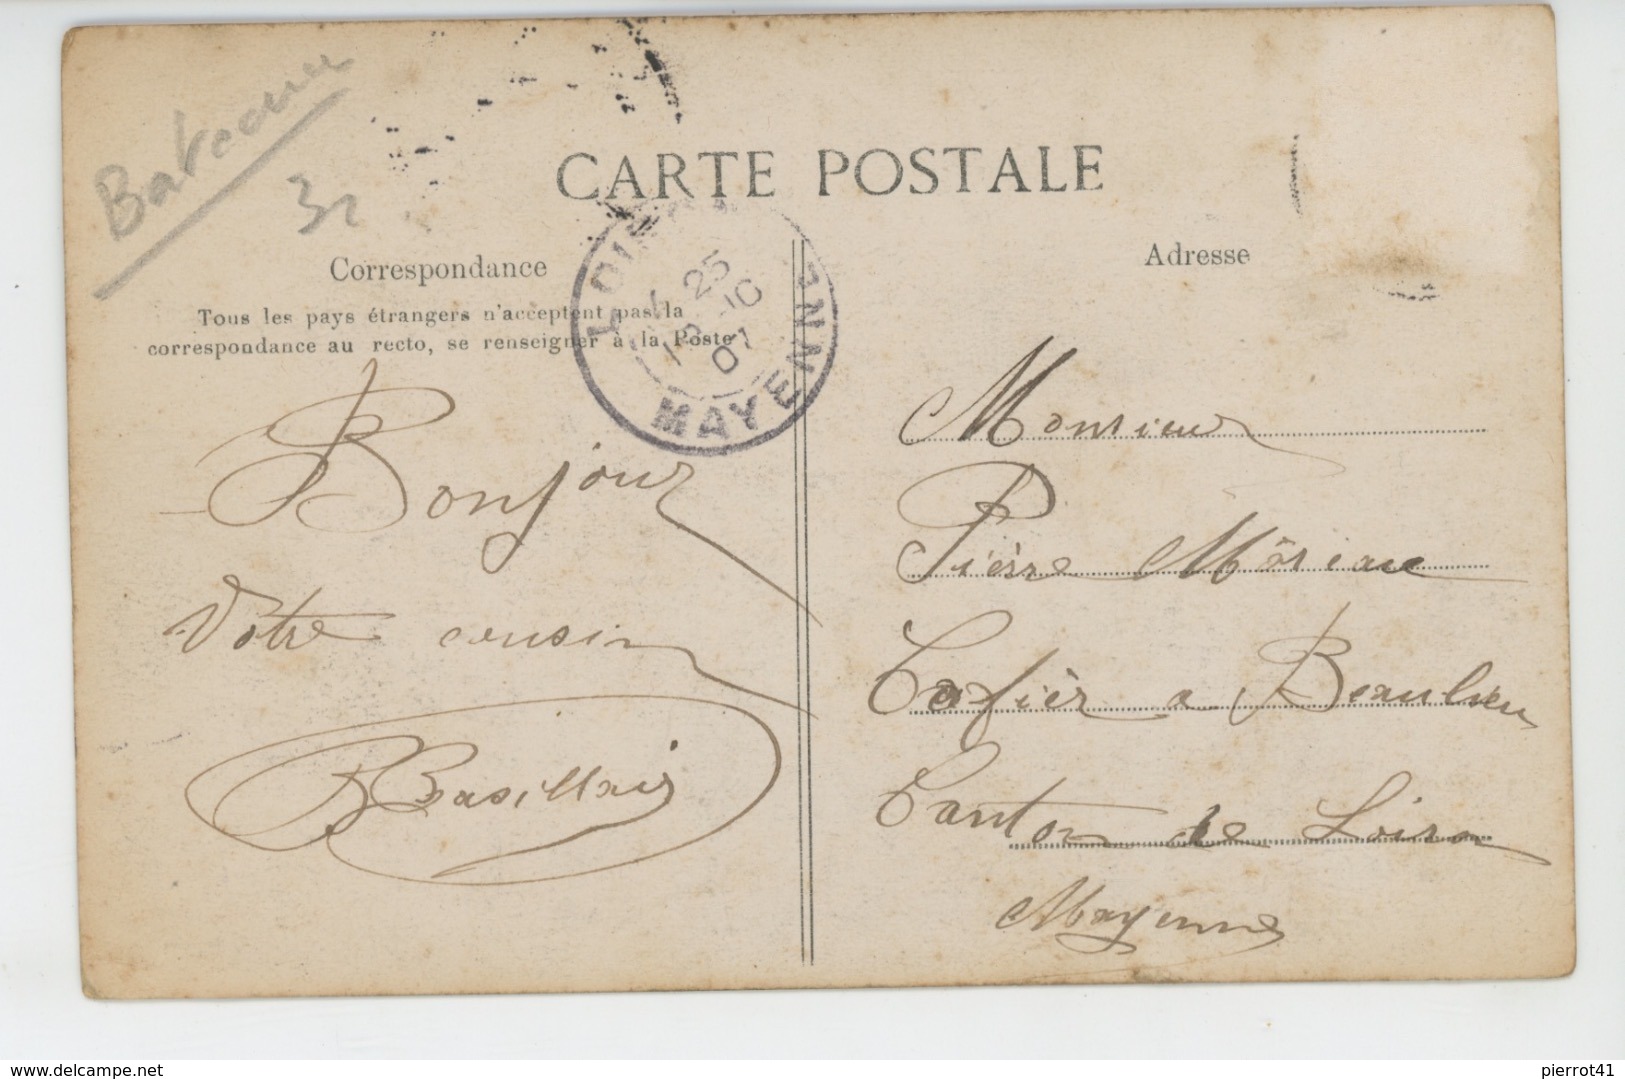 Bateau
32
CARTE POSTALE
Correspondance
Tous les pays étrangers n'acceptent pas la
correspondance au recto, se renseigner à la Poste
Adresse
25
10
07
MAYENNE
Bonjour
Votre cousin
Monsieur
Pierre
à Beaulieu
Canton de Loiron
Mayenne
www.delcampe.net
pierrot41